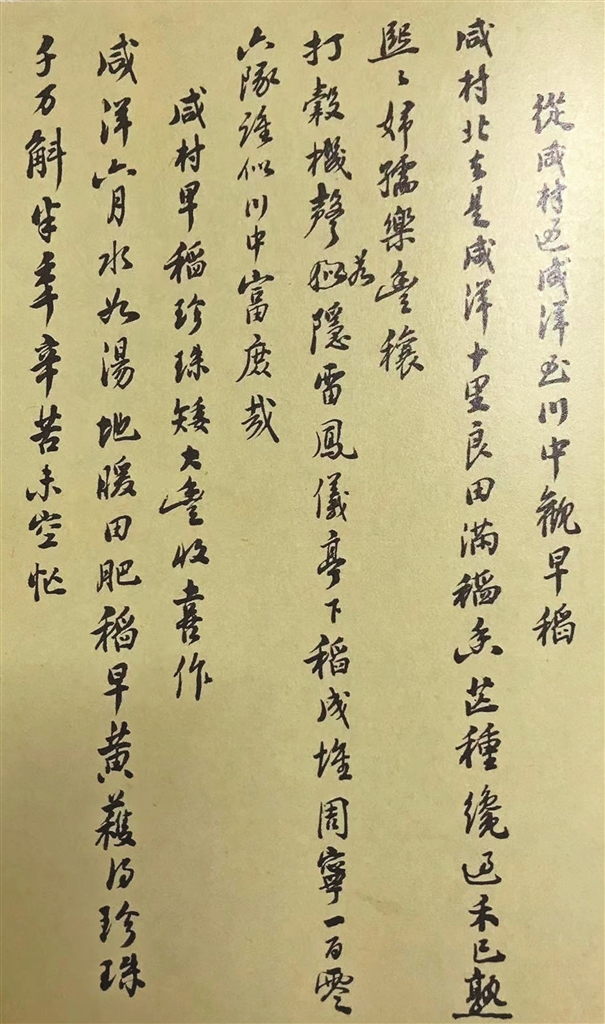 從咸村過咸洋至川中觀早稻
咸村北去是咸洋十里良田滿稻香芒種纔過禾已熟
熙々婦孺樂豐穰
打穀機聲若隱雷鳳儀亭下稻成堆周寧一百零
六隊誰似川中富庶哉
咸村早稻珍珠矮大豐收喜作
咸洋六月水如湯地暖田肥稻早黃穫得珍珠
千万斛半年辛苦未空忙